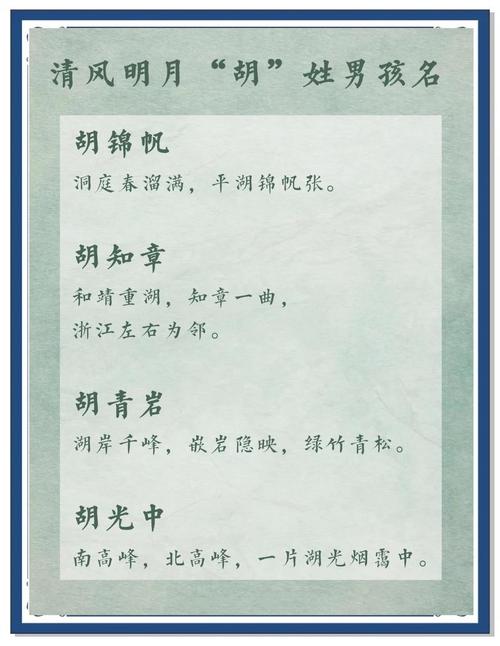 清风明月“胡”姓男孩名
胡锦帆
洞庭春溜满，平湖锦帆张。
胡知章
和靖重湖，知章一曲，
浙江左右为邻。
胡青岩
湖岸千峰，嵌岩隐映，绿竹青松。
胡光中
南高峰，北高峰，一片湖光烟霭中。